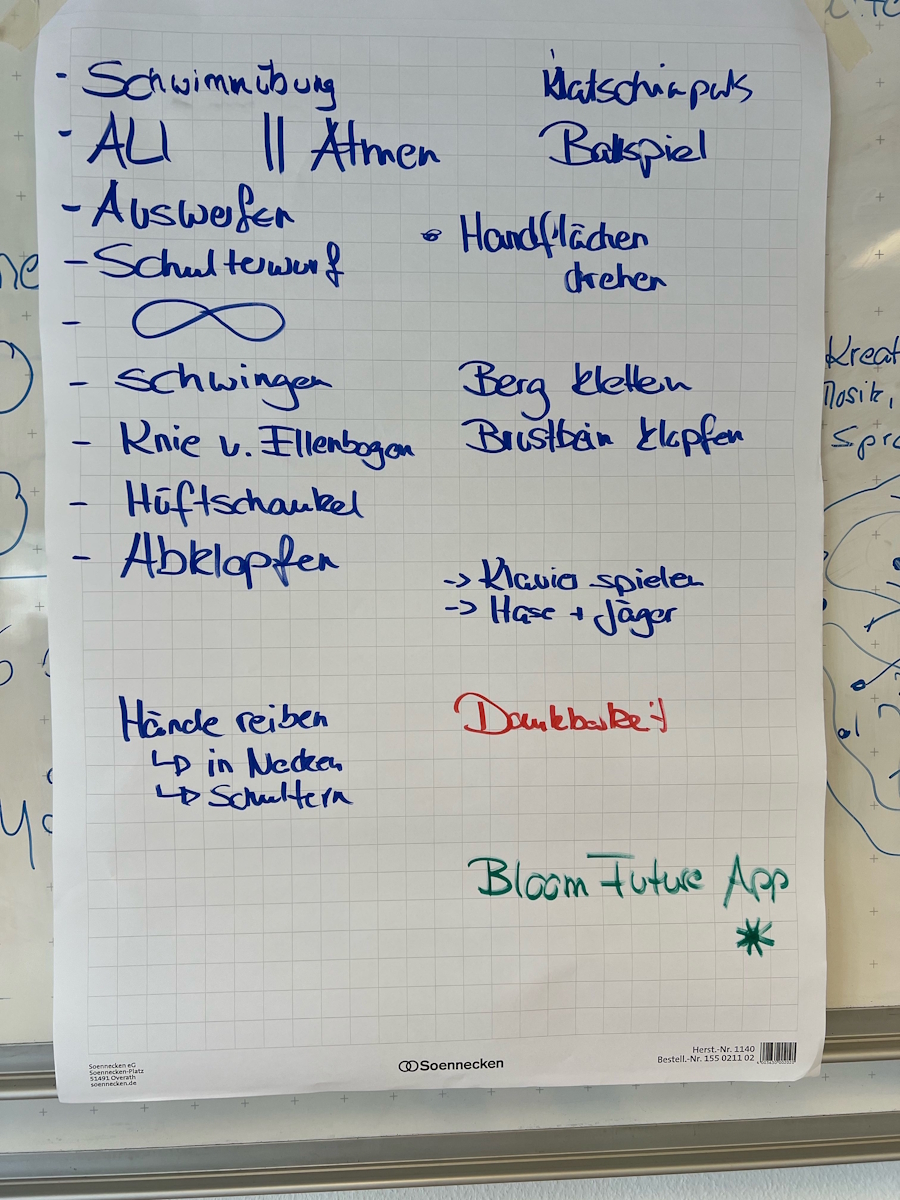 - Schwimmübung
- ALI || Atmen
- Auswerfen
- Schulterwurf
- ∞
- schwingen
- Knie v. Ellenbogen
- Hüftschaukel
- Abklopfen
Hände reiben
↳ in Nacken
↳ Schultern
Ballspiel
• Handflächen
drehen
Berg kletten
Brustbein klopfen
-> Klavier spielen
-> Hase + Jäger
Dankbarkeit
Bloom Future App
*
Kreat
Musik,
Spra
Soennecken eG
Soennecken-Platz
51491 Overath
soennecken.de
Soennecken
Herst.-Nr. 1140
Bestell.-Nr. 155 0211 02